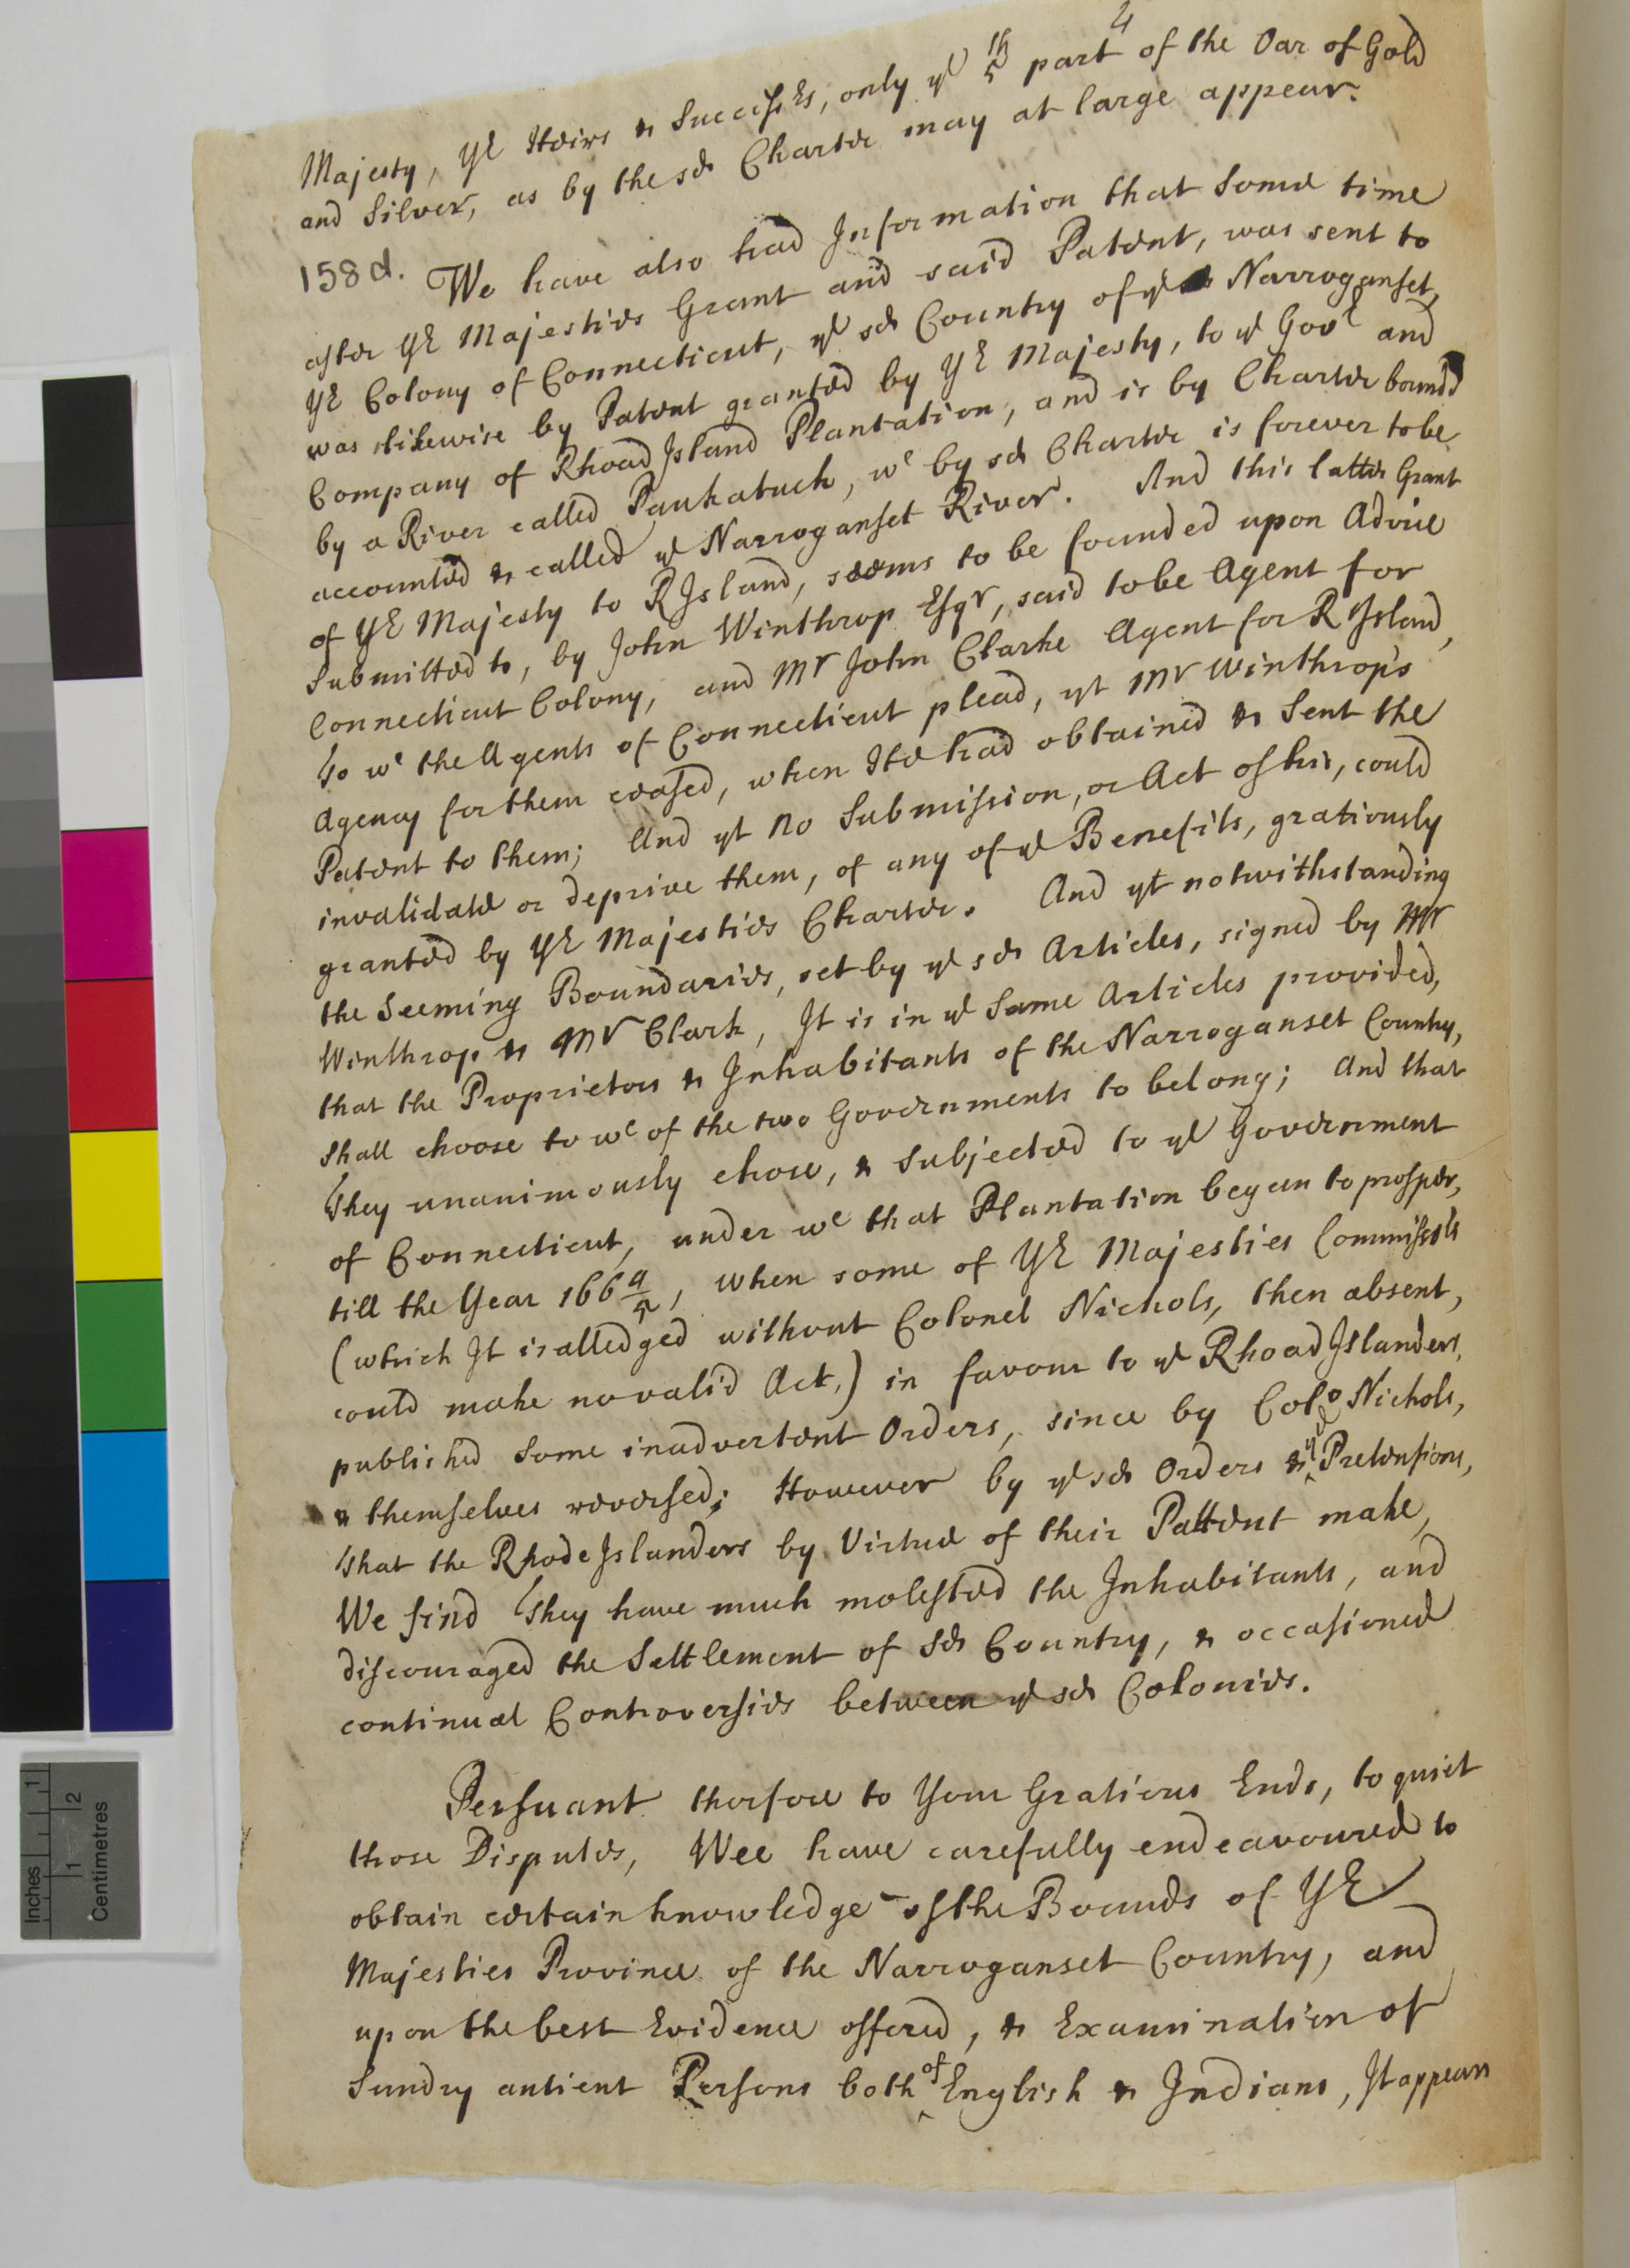 4
Majesty, Yr Heirs & Successrs, only ye 5th part of the Oar of Gold
and Silver, as by the sd Charter may at large appear.
158d. We have also had Information that some time
after Yr Majesties Grant and said Patent, was sent to
Yr Colony of Connecticut, ye sd Country of ye Narroganset,
was likewise by Patent granted by Yr Majesty, to ye Govr and
Company of Rhoad Island Plantation, and is by Charter bounded
by a River called Paukatuck, wc by sd Charter is forever to be
accounted & called ye Narroganset River. And this latter Grant
of Yr Majesty to R Island, seems to be founded upon Advice
Submitted to, by John Winthrop Esqr, said to be Agent for
Connecticut Colony, and Mr John Clarke Agent for R Island,
To wc the Agents of Connecticut plead, yt Mr Winthrops
Agency for them ceased, when He had obtained & Sent the
Patent to them; And yt no Submission, or Act of his, could
invalidate or deprive them, of any of ye Benefits, gratiously
granted by Yr Majesties Charter. And yt notwithstanding
the Seeming Boundaries, set by ye sd Articles, signed by Mr
Winthrop & Mr Clark, It is in ye Same Articles provided,
that the Proprietors & Inhabitants of the Narroganset Country,
shall choose to wc of the two Governments to belong; And that
They unanimously chose, & subjected to ye Government
of Connecticut, under wc that Plantation began to prosper,
till the Year 166 4/5, when some of Yr Majesties Commissrs
(which It is alledged without Colonel Nichols, then absent,
could make no valid Act,) in favour to ye Rhoad Islanders,
published Some inadvertent Orders, since by Colo Nichols,
& themselves reversed; However by ye sd Orders & ye Pretensions,
That the Rhode Islanders by Virtue of their Pattent make,
We find They have much molested the Inhabitants, and
discouraged the Settlement of Sd Country, & occasioned
continual Controversies between ye sd Colonies.
Persuant therfore to Your Gratious Ends, to quiet
those Disputes, Wee have carefully endeavoured to
obtain certain knowledge of the Bounds of Yr
Majesties Province of the Narroganset Country, and
upon the best Evidence offered, & Examination of
Sundry antient Persons both of English & Indians, It appears
Inches
1
1
2
Centimetres